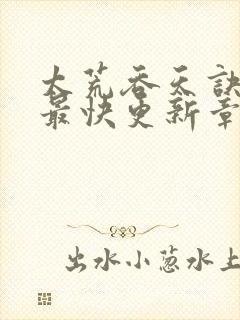 大荒吞天訣
最快更新章
出水小葱水上